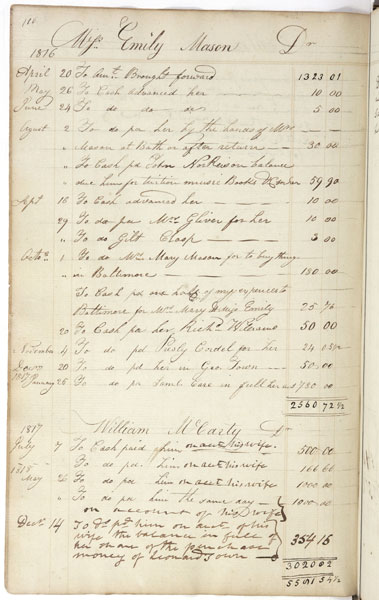 100
Miss Emily Mason Dr
1816
April 20 To Amt. Brought forward 1323 01
May 26 To Cash advanced her 10 00
June 24 To do do do 5 00
August 2 To do pd her by the hands of Mrs
" Mason at Bath or after return 30 00
" To Cash pd John balance
" due him for tuition music Books 59 90
Sept 18 To Cash advanced her 10 00
29 To do pr Mrs Gliver for her 10 00
" To do Gilt Clasp 3 00
Octor 1 To do Mrs Mary Mason for to buy things
" in Baltimore 180 00
To Cash pd one half of my expences to
Baltimore for Mrs Mary & Miss Emily 25 76
20 To Cash pd her, Richd Williams 50 00
November 4 To do pd Cordel for her 24
20 To do pd her in Geo. Town 50 00
1817 January 28 To do pr in full her 720 00
2560 72 1/2
1817 William McCarty Dr
July 7 To Cash paid him on acct his wife 500 00
1818 To do pd him on acct his wife 166 60
May 26 To do pd him on acct his wife 1000 00
" To do pd him the same day 1000 00
on account of his wife
Decr 14 To Do pd him on acct of his
wife the balance in full of
her share of the purchase
money of Leonard Town
354 15
3020 02